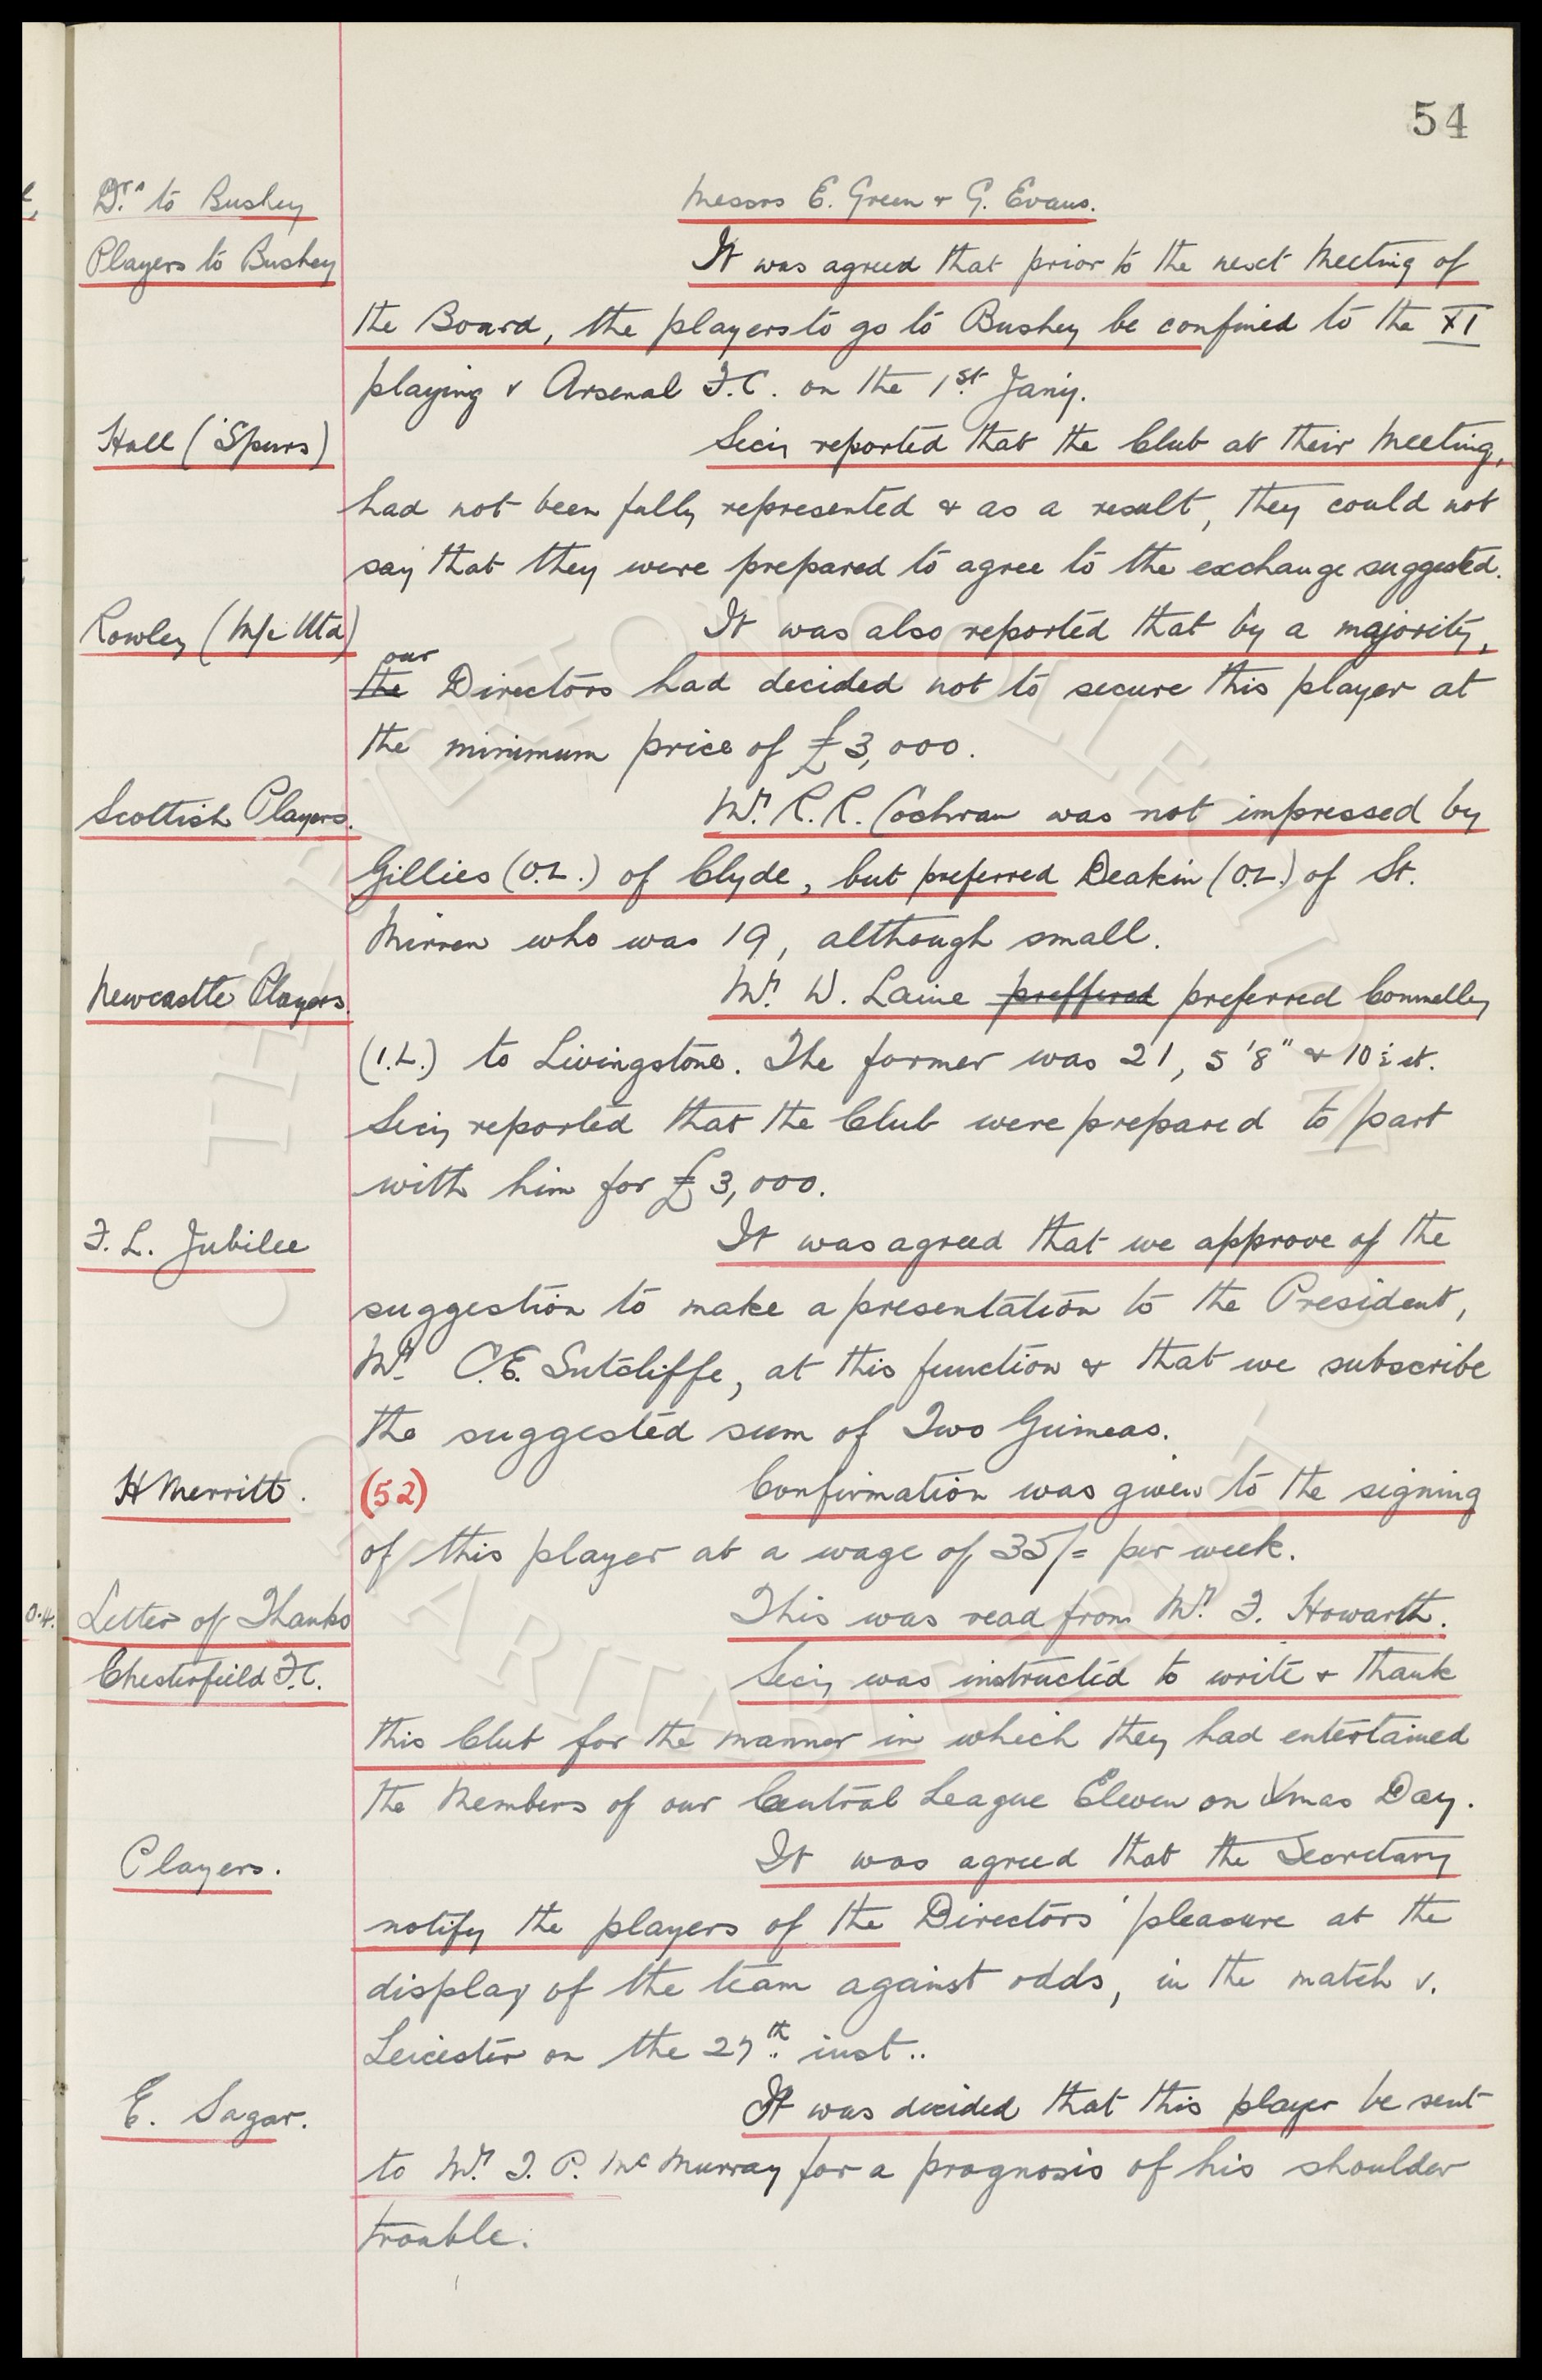 54
Drs to Bushey
Messrs E. Green & G. Evans.
Players to Bushey
It was agreed that prior to the next Meeting of
the Board, the players to go to Bushey be confined to the XI
playing v Arsenal F.C. on the 1st Jany.
Hall ('Spurs)
Secy reported that the Club at their Meeting,
had not been fully represented & as a result, they could not
say that they were prepared to agree to the exchange suggested.
Rowley (M/c Utd)
It was also reported that by a majority,
our
the Directors had decided not to secure this player at
the minimum price of £3,000.
Scottish Players.
Mr. R.R. Cochran was not impressed by
Gillies (O.L.) of Clyde, but preferred Deakin (O.L.) of St.
Mirren who was 19, although small.
Newcastle Players.
Mr. W. Laine preffered preferred Connelley
(I.L.) to Livingstone. The former was 21, 5'8" & 10½ st.
Secy reported that the Club were prepared to part
with him for £3,000.
F. L. Jubilee
It was agreed that we approve of the
suggestion to make a presentation to the President,
Mr. C.E. Sutcliffe, at this function & that we subscribe
the suggested sum of Two Guineas.
H Merritt.
(52)
Confirmation was given to the signing
of this player at a wage of 35/= per week.
Letter of Thanks
This was read from Mr. F. Howarth.
Chesterfield F.C.
Secy was instructed to write & thank
this Club for the manner in which they had entertained
the Members of our Central League Eleven on Xmas Day.
Players.
It was agreed that the Secretary
notify the players of the Directors' pleasure at the
display of the team against odds, in the match v.
Leicester on the 27th inst..
E. Sagar.
It was decided that this player be sent
to Mr. T. P. McMurray for a prognosis of his shoulder
trouble.
THE EVERTON COLLECTION
CHARITABLE TRUST